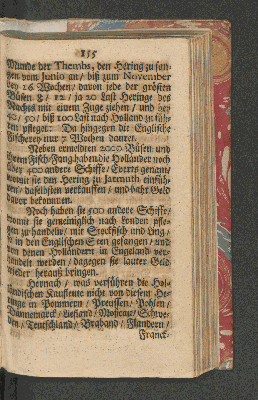 135
Munde der Thembs, den Hering zu fan-
gen vom Junio an / biß zum November
bey 26 Wochen / davon jede der größten
Büsen 8 / 12 / ja 20 Last Heringe des
Nachts mit einem Zuge ziehen / und bey
40 / 50 / biß 100 Last nach Holland zu füh-
ren pfleget: Da hingegen die Englische
Fischerey nur 7 Wochen dauret.
Neben ermeldten 2000 Büsen und
deren Fisch-Fang haben die Holländer noch
über 400 andere Schiffe / Evers genant /
womit sie den Hering zu Jarmuth einfüh-
ren / daselbsten verkauffen / und bahr Geld
davor bekommen.
Noch haben sie 500 andere Schiffe /
womit sie gemeiniglich nach London pfle-
gen zu handeln / mit Stockfisch und Ling /
so in den Englischen Seen gefangen / und
von denen Holländern in Engeland ver-
handelt werden / dagegen sie lauter Geld
wieder herauß bringen.
Hernach / was verführen die Hol-
ländischen Kauffleute nicht von diesem He-
ringe in Pommern / Preussen / Pohlen /
Dännemarck / Liefland / Moscau / Schwe-
den / Teutschland / Braband / Flandern /
Franck-